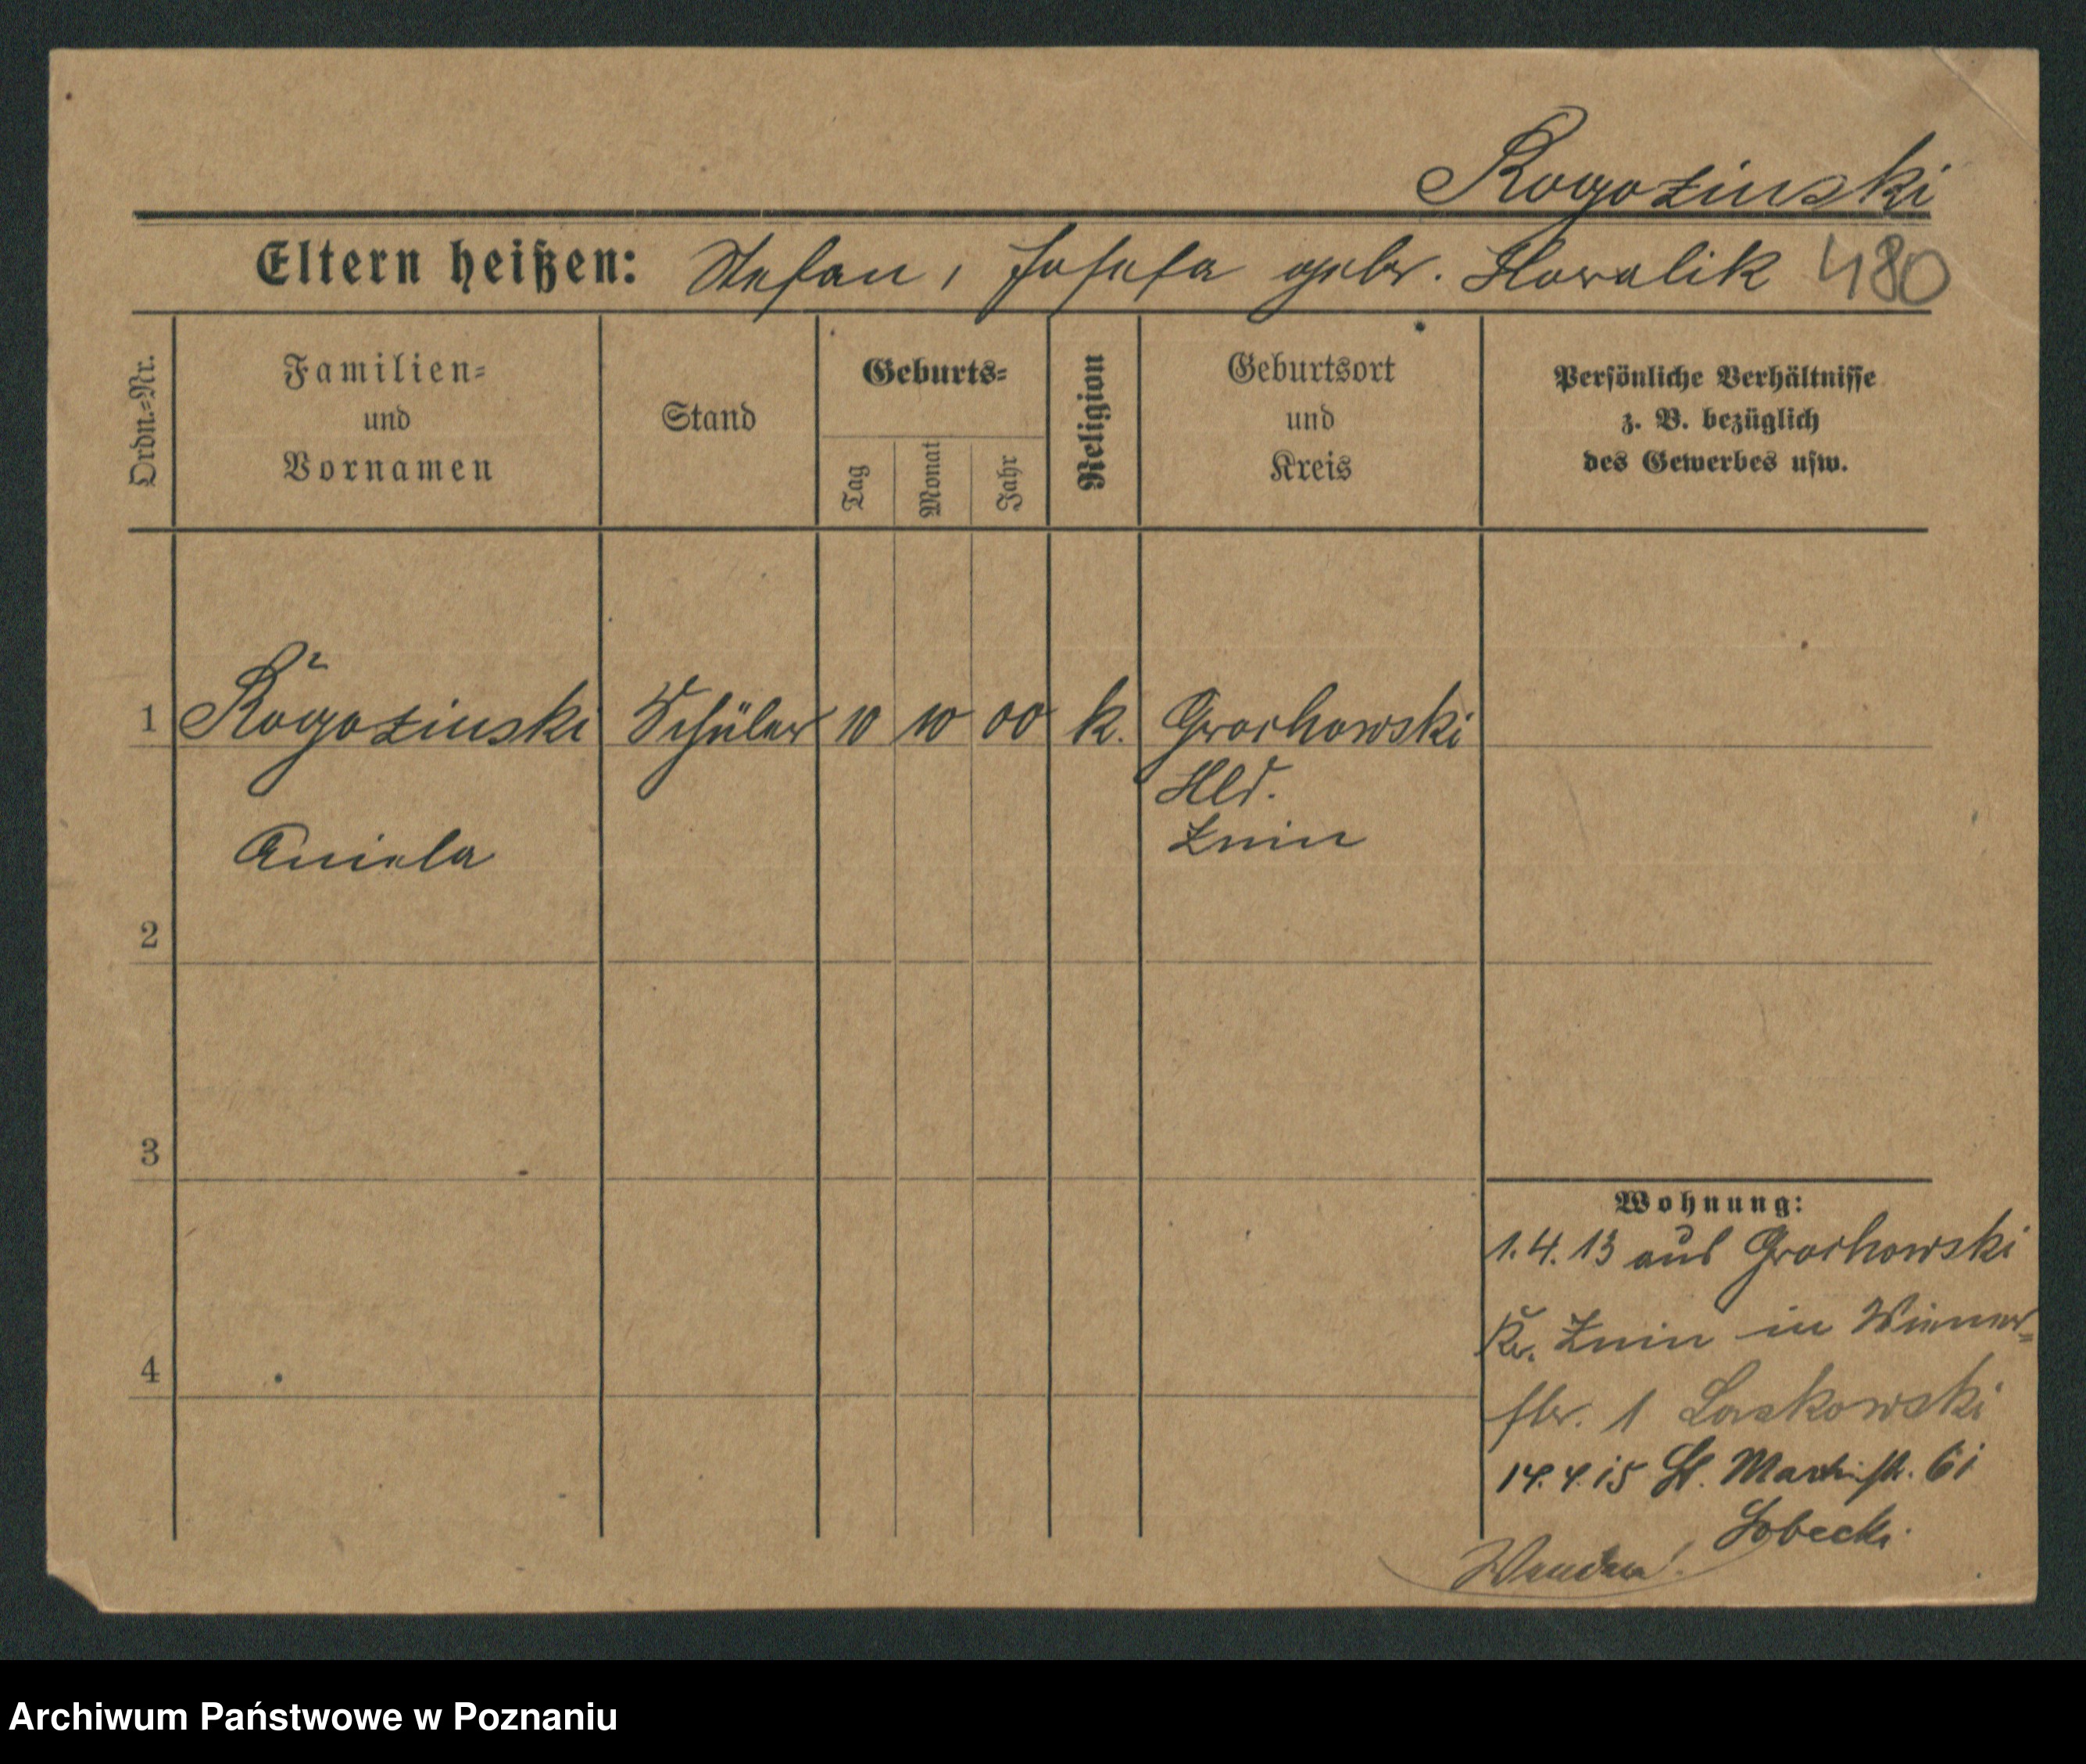 Rogozinski
Eltern heißen: Stefan, Josefa gebr. Kowalik 480
Ordn.-Nr.
Familien-
und
Vornamen
Stand
Geburts-
Tag
Monat
Jahr
Religion
Geburtsort
und
Kreis
Persönliche Verhältnisse
z. B. bezüglich
des Gewerbes usw.
1 Rogozinski Schüler 10 10 00 k. Grochowski
Hld.
Znin
Aniela
2
3
4
Wohnung:
1.4.13 aus Grochowski
Kr. Znin in Wiener-
str. 1 Laskowski
14.4.15 St. Martinstr. 61
Sobecki
Wenden!
Archiwum Państwowe w Poznaniu